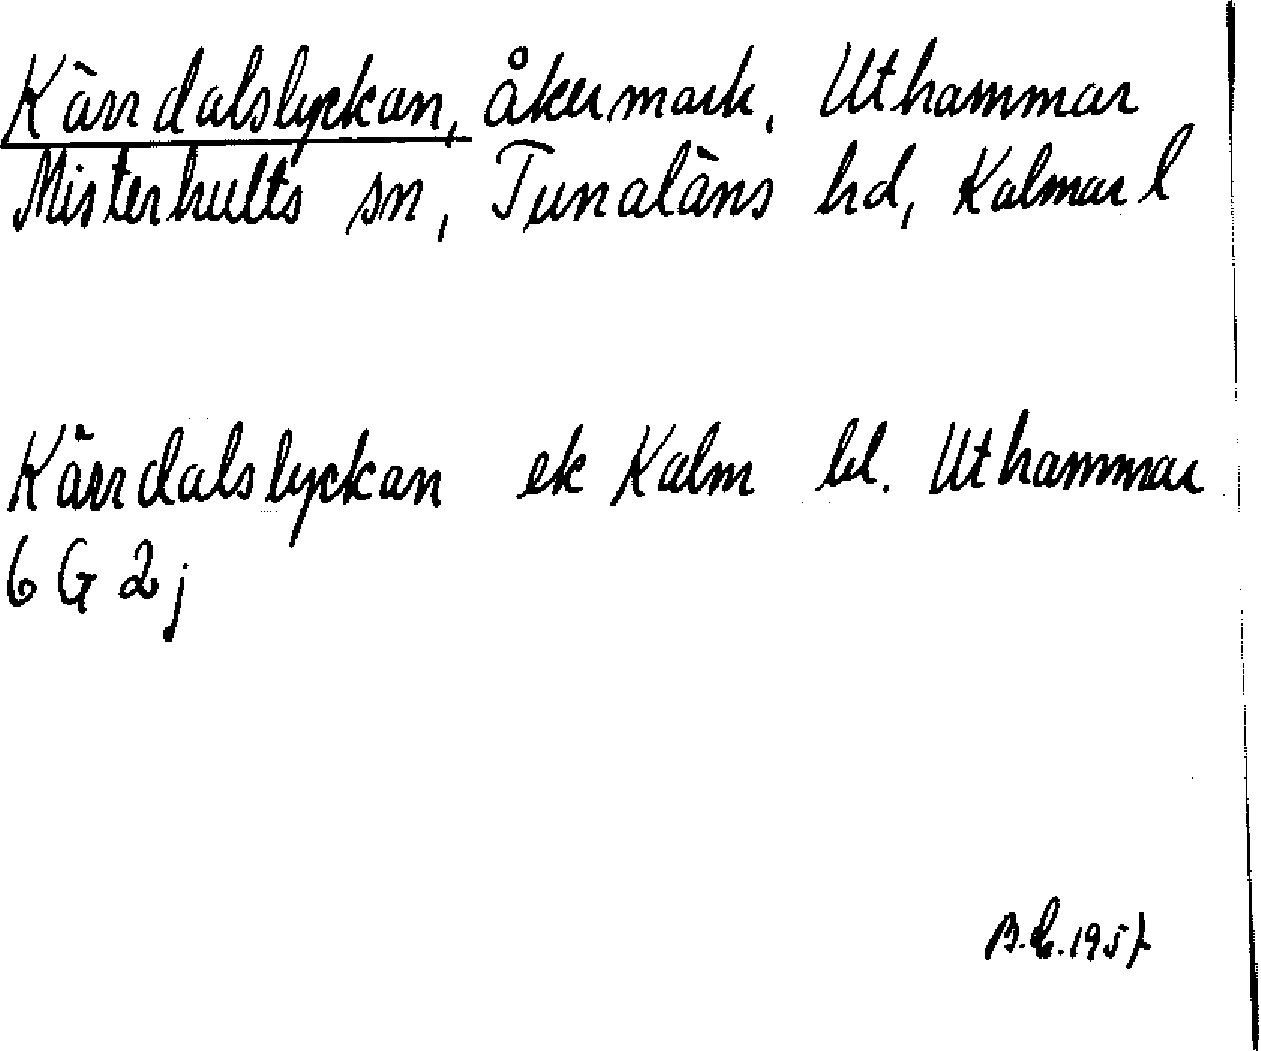 Kärrdalslyckan, åkermark, Uthammar
Misterhults sn, Tunaläns hd, Kalmar l
Kärrdalslyckan ek Kalm bl. Uthammar
6 G 2 j
1957